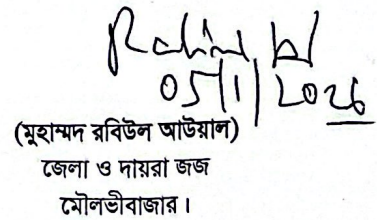 05/1/2026
(মুহাম্মদ রবিউল আউয়াল)
জেলা ও দায়রা জজ
মৌলভীবাজার।